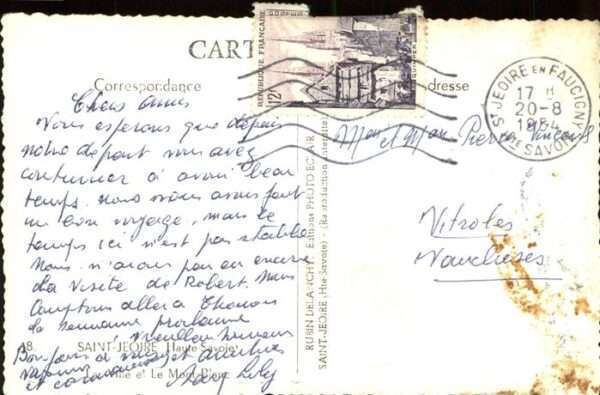 CARTE
Correspondance
Adresse
REPUBLIQUE FRANÇAISE
POSTES
12F
QUIMPER
ST JEOIRE EN FAUCIGNY
17 H
20-8
1954
HTE SAVOIE
Chers amis
Nous esperons que depuis
notre depart vous avez
continuer a avoir beau
temps. nous nous avons fait
un bon voyage, mais le
temps ici n'est pas stable
Nous n'avons pas eu encore
la visite de Robert. Nous
comptons aller a Thonon
la semaine prochaine
Meilleur
Bonjour a
et
Mon et Mme Pierre Vincent
Vitroles
Vaucluses
RUBIN DELANCHY, Editions PHOTO-ECLAIR
SAINT-JEOIRE, (Hte Savoie) (Reproduction interdite)
48 SAINT-JEOIRE (Haute Savoie)
Ville et Le Mont-Blanc